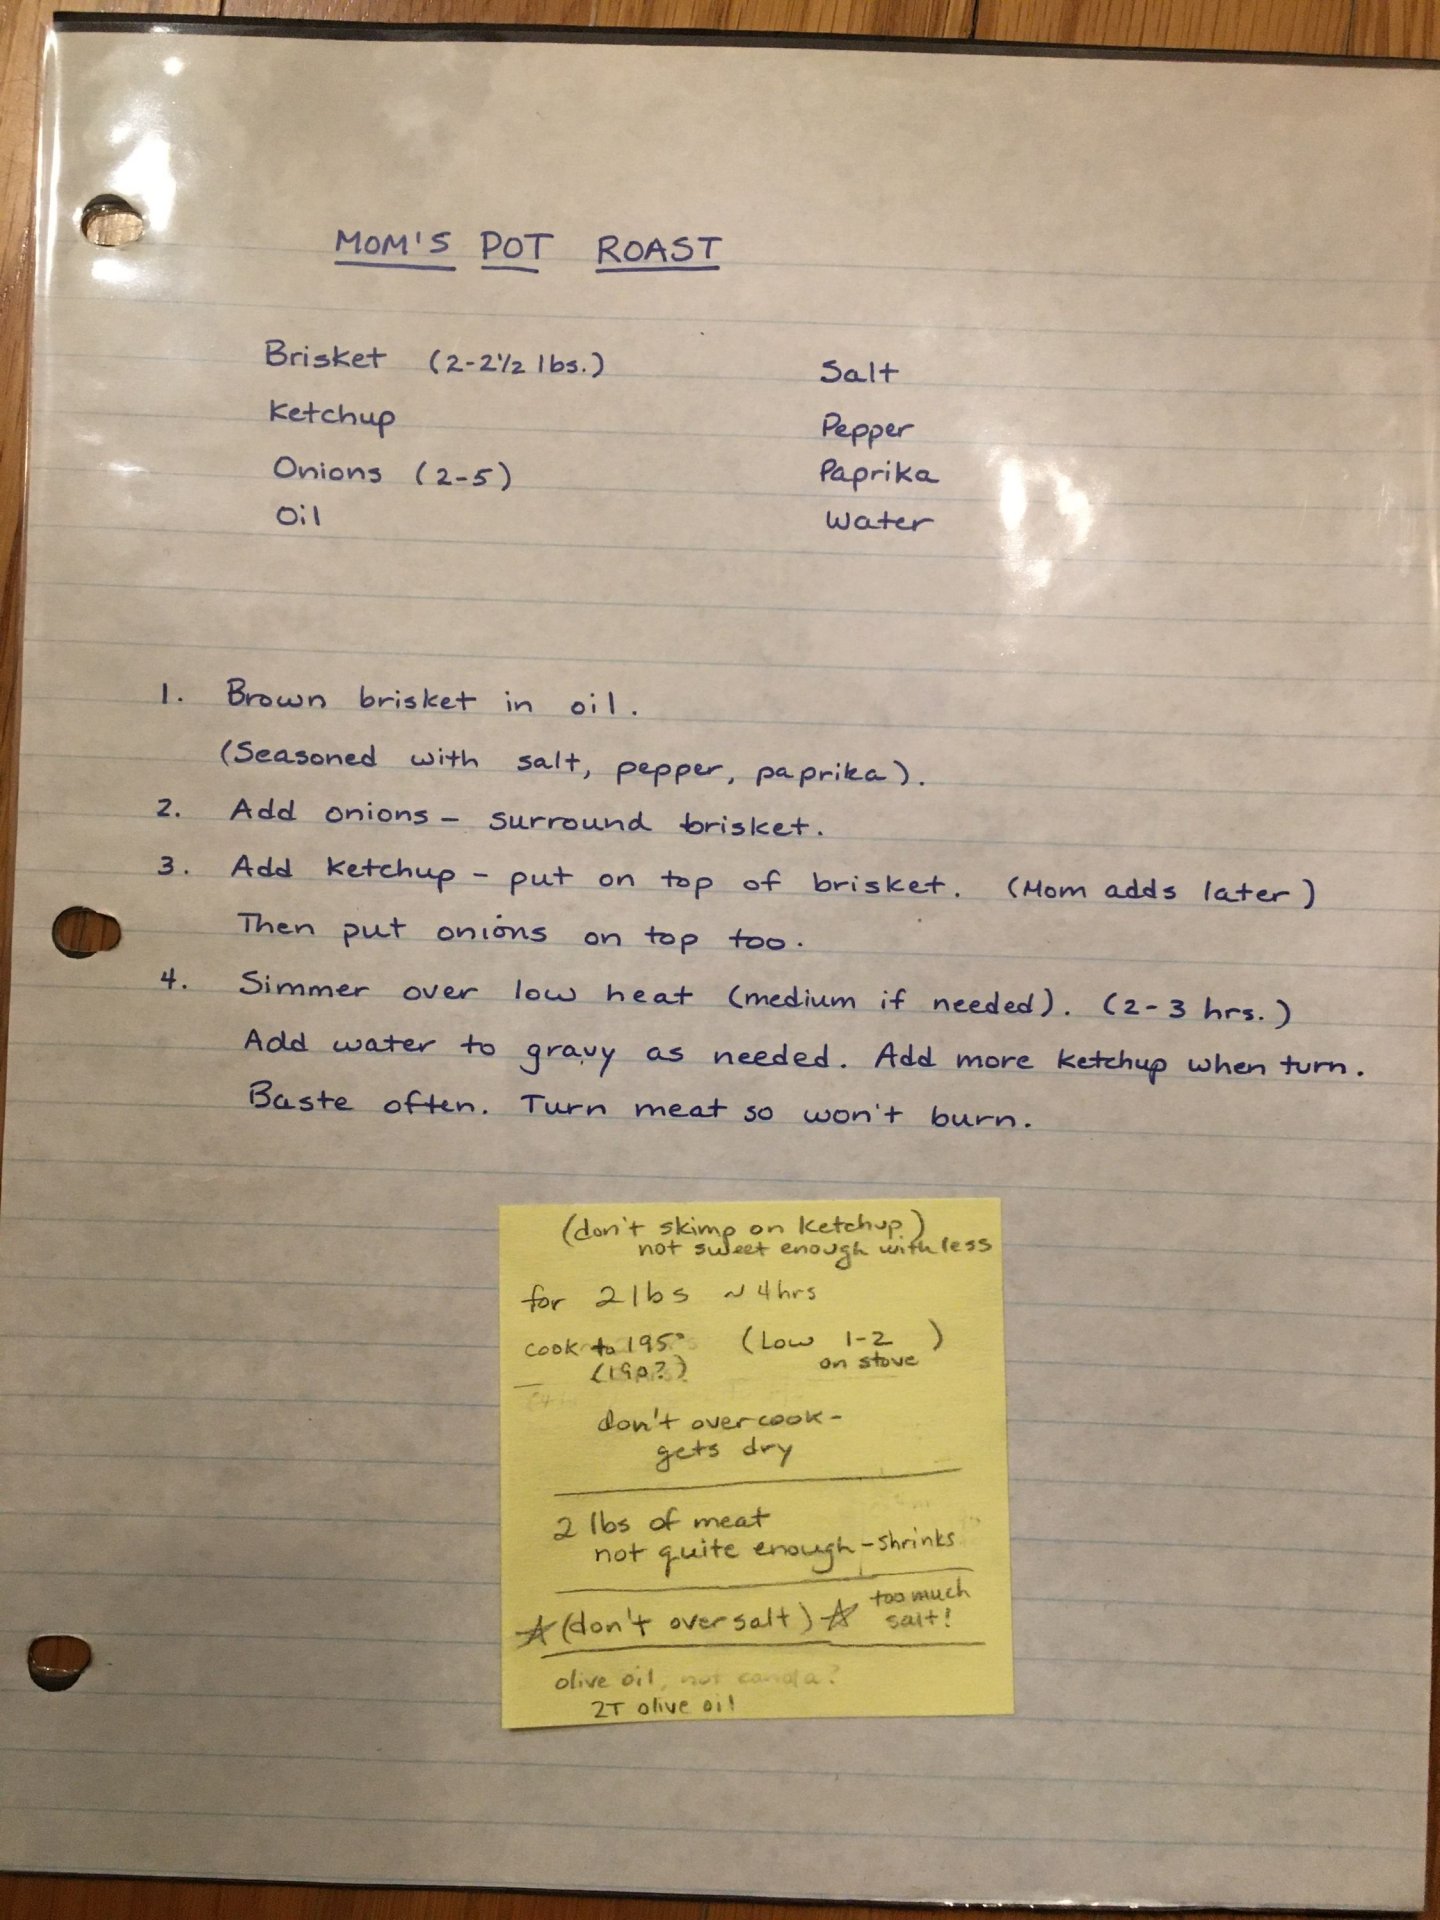 MOM'S POT ROAST
Brisket (2-2½ lbs.)
Ketchup
Onions (2-5)
Oil
Salt
Pepper
Paprika
Water
1. Brown brisket in oil.
(Seasoned with salt, pepper, paprika).
2. Add onions - surround brisket.
3. Add ketchup - put on top of brisket. (Mom adds later)
Then put onions on top too.
4. Simmer over low heat (medium if needed). (2-3 hrs.)
Add water to gravy as needed. Add more ketchup when turn.
Baste often. Turn meat so won't burn.
(don't skimp on ketchup)
not sweet enough with less
for 2 lbs ~ 4 hrs
cook to 195° (Low 1-2)
(190?) on stove
don't overcook-
gets dry
2 lbs of meat
not quite enough - shrinks
☆ (don't over salt) ☆ too much
salt!
olive oil, not canola?
2T olive oil